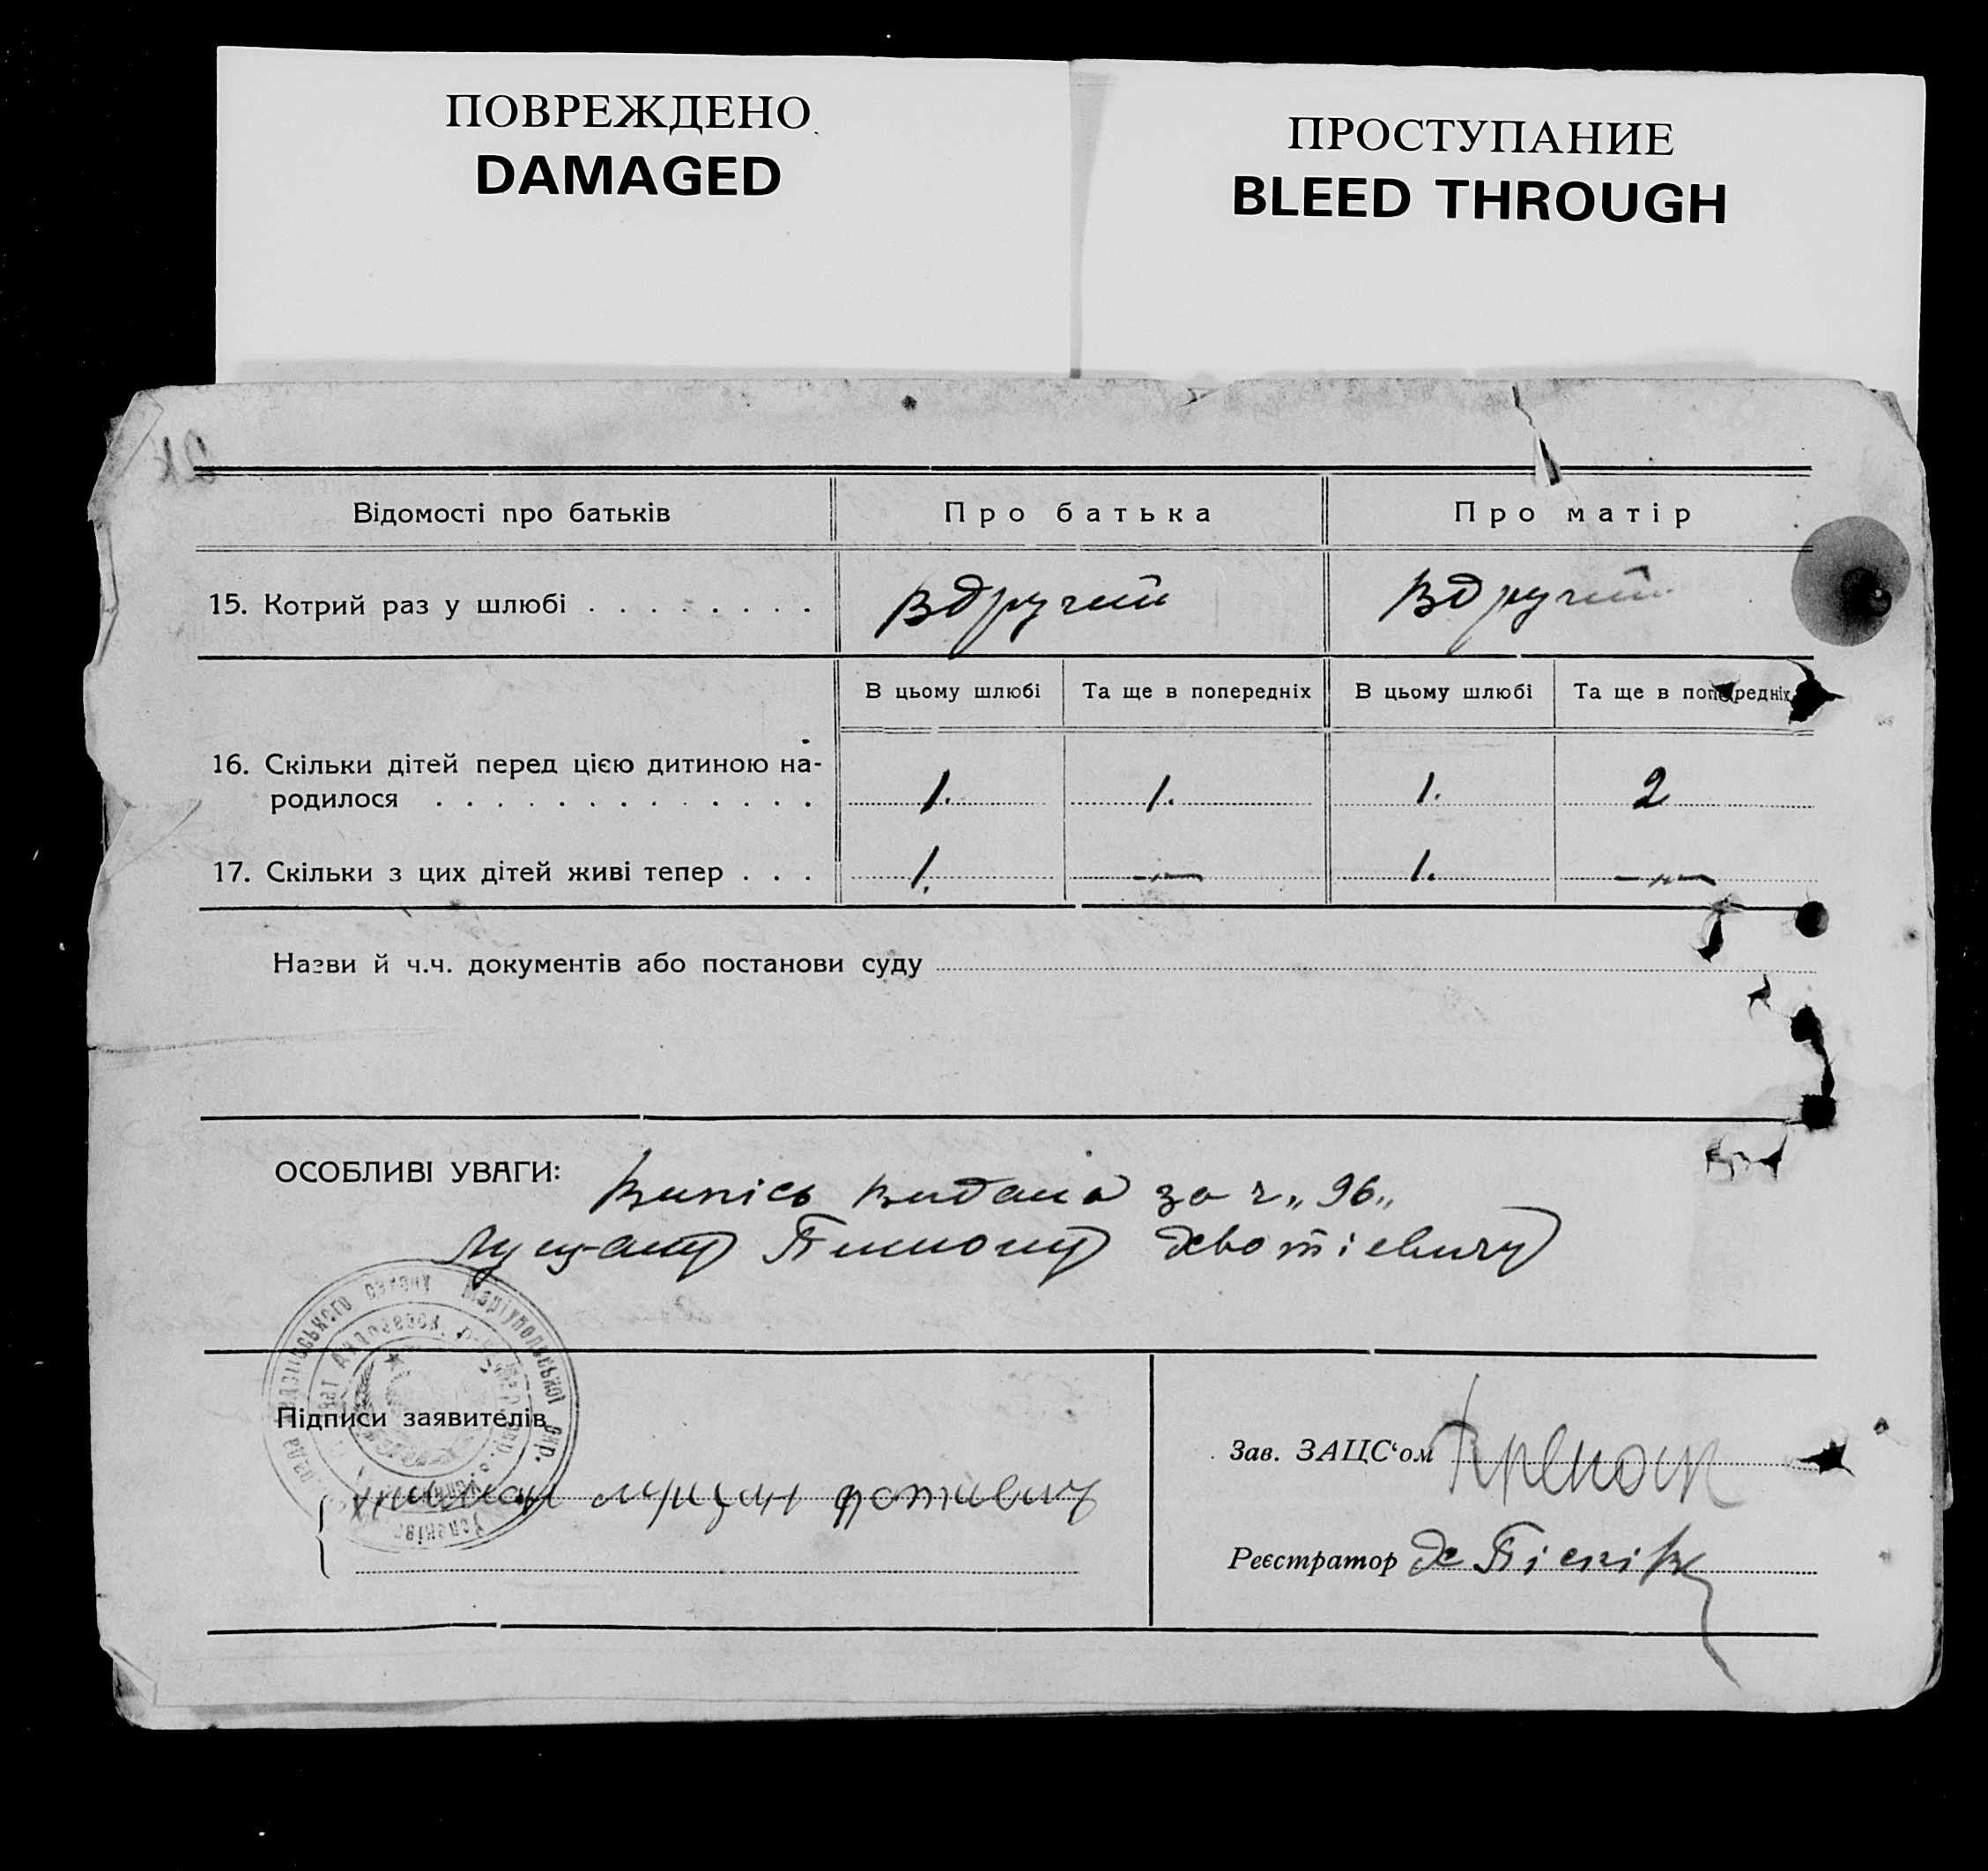 ПОВРЕЖДЕНО
DAMAGED
ПРОСТУПАНИЕ
BLEED THROUGH
Відомості про батьків
Про батька
Про матір
15. Котрий раз у шлюбі . . . . . . . .
вдручий
вдручий
В цьому шлюбі
Та ще в попередніх
В цьому шлюбі
Та ще в попередніх
16. Скільки дітей перед цією дитиною на-
родилося . . . . . . . . . . . . .
1.
1.
1.
2
17. Скільки з цих дітей живі тепер . . .
1.
—"—
1.
—"—
Назви й ч.ч. документів або постанови суду
ОСОБЛИВІ УВАГИ:
Випісь видана за ч „96"
Луцану
району Маріупольської окр.
Підписи заявителів
Зав. ЗАЦС'ом
Реєстратор